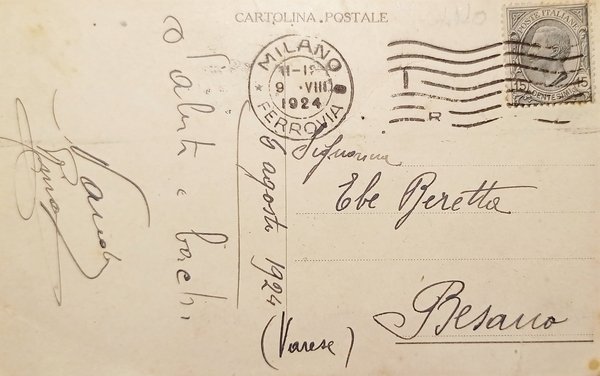 CARTOLINA POSTALE
MILANO
11-1
9 VIII
1924
FERROVIA
POSTE ITALIANE
15 15
CENTESIMI
R
Signorina
Ebe Beretta
Besano
(Varese)
6 agosto 1924
Saluti e baci